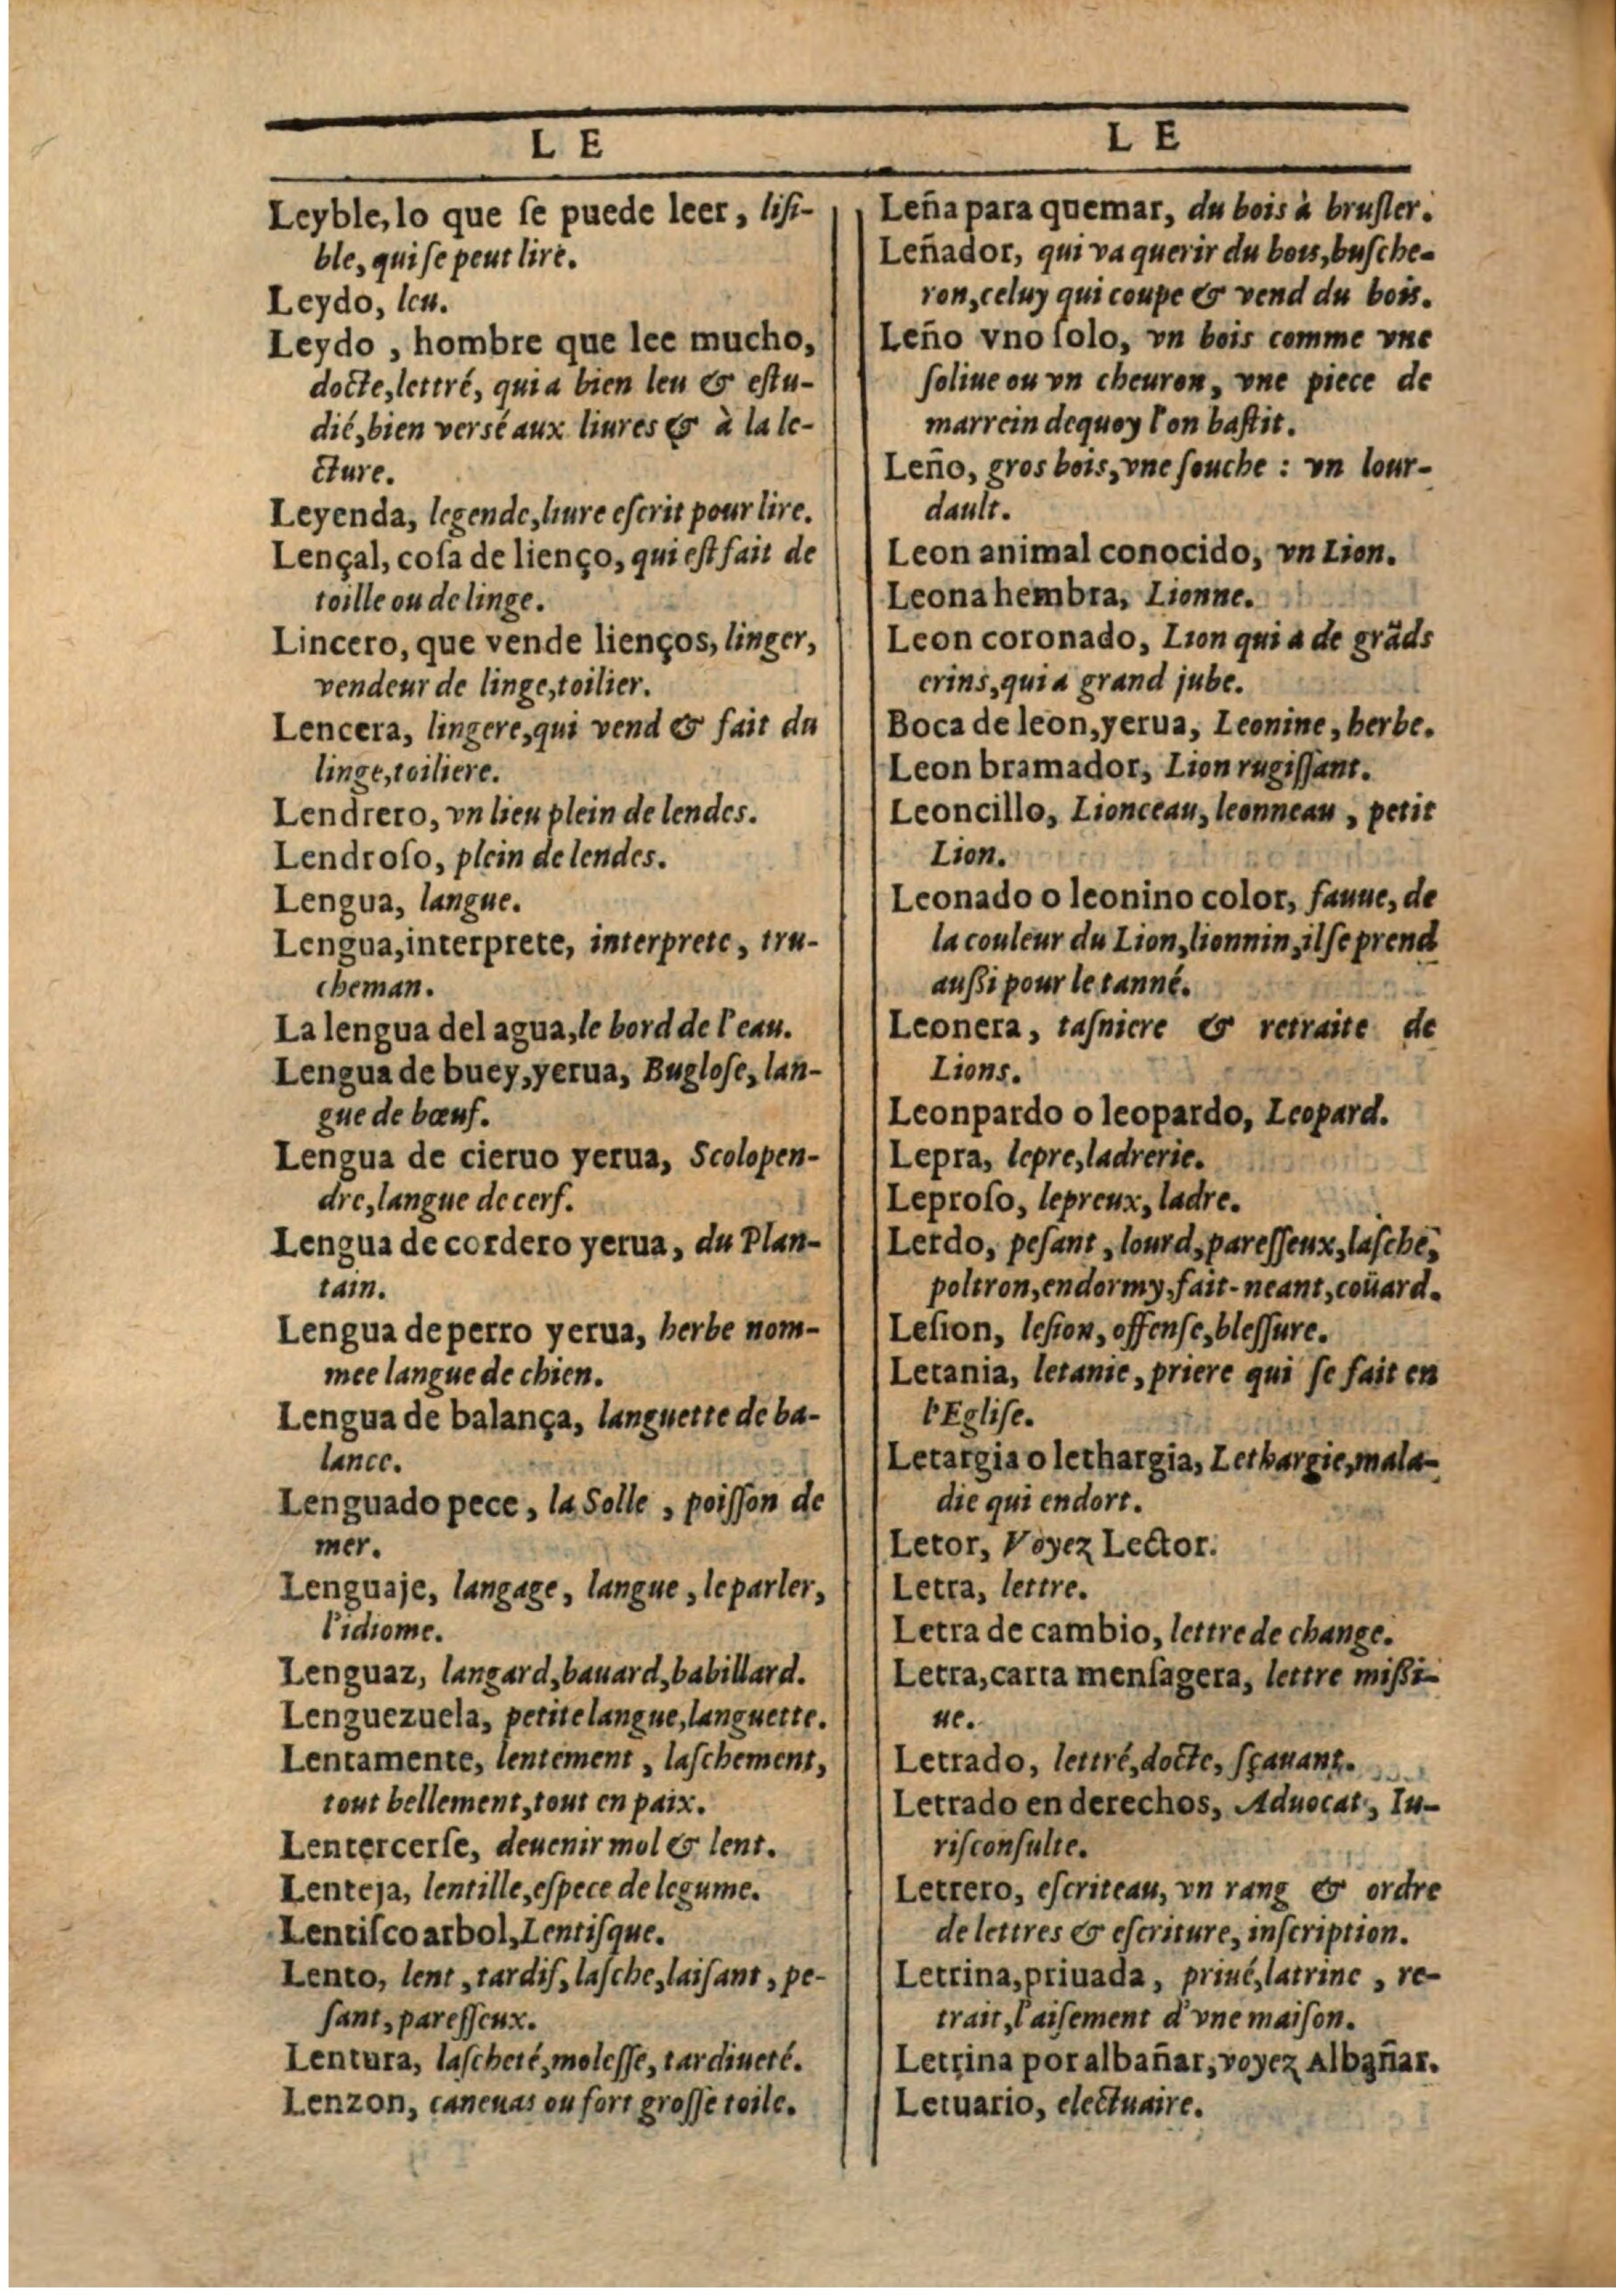 L E
Leyble, lo que ſe puede leer, liſi-
ble, qui ſe peut lire.
Leydo, leu.
Leydo, hombre que lee mucho,
docte, lettré, qui a bien leu & eſtu-
dié, bien versé aux liures & à la le-
cture.
Leyenda, legende, liure eſcrit pour lire.
Lençal, coſa de lienço, qui eſt fait de
toille ou de linge.
Lincero, que vende lienços, linger,
vendeur de linge, toilier.
Lencera, lingere, qui vend & fait du
linge, toiliere.
Lendrero, vn lieu plein de lendes.
Lendroſo, plein de lendes.
Lengua, langue.
Lengua, interprete, interprete, tru-
cheman.
La lengua del agua, le bord de l'eau.
Lengua de buey, yerua, Bugloſe, lan-
gue de bœuf.
Lengua de cieruo yerua, Scolopen-
dre, langue de cerf.
Lengua de cordero yerua, du Plan-
tain.
Lengua de perro yerua, herbe nom-
mee langue de chien.
Lengua de balança, languette de ba-
lance.
Lenguado pece, la Solle, poiſſon de
mer.
Lenguaje, langage, langue, le parler,
l'idiome.
Lenguaz, langard, bauard, babillard.
Lenguezuela, petite langue, languette.
Lentamente, lentement, laſchement,
tout bellement, tout en paix.
Lentercerſe, deuenir mol & lent.
Lenteja, lentille, eſpece de legume.
Lentiſco arbol, Lentiſque.
Lento, lent, tardif, laſche, laiſant, pe-
ſant, pareſſeux.
Lentura, laſcheté, moleſſe, tardiueté.
Lenzon, caneuas ou fort groſſe toile.
L E
Leña para quemar, du bois à bruſler.
Leñador, qui va querir du bois, buſche-
ron, celuy qui coupe & vend du bois.
Leño vno ſolo, vn bois comme vne
ſoliue ou vn cheuron, vne piece de
marrein dequoy l'on baſtit.
Leño, gros bois, vne ſouche : vn lour-
dault.
Leon animal conocido, vn Lion.
Leona hembra, Lionne.
Leon coronado, Lion qui a de grãds
crins, qui a grand jube.
Boca de leon, yerua, Leonine, herbe.
Leon bramador, Lion rugiſſant.
Leoncillo, Lionceau, leonneau, petit
Lion.
Leonado o leonino color, fauue, de
la couleur du Lion, lionnin, il ſe prend
auſſi pour le tanné.
Leonera, taſniere & retraite de
Lions.
Leonpardo o leopardo, Leopard.
Lepra, lepre, ladrerie.
Leproſo, lepreux, ladre.
Lerdo, peſant, lourd, pareſſeux, laſche,
poltron, endormy, fait-neant, coüard.
Leſion, leſion, offenſe, bleſſure.
Letania, letanie, priere qui ſe fait en
l'Egliſe.
Letargia o lethargia, Lethargie, mala-
die qui endort.
Letor, Voyez Lector.
Letra, lettre.
Letra de cambio, lettre de change.
Letra, carta menſagera, lettre miſſi-
ue.
Letrado, lettré, docte, ſçauant.
Letrado en derechos, Aduocat, Iu-
riſconſulte.
Letrero, eſcriteau, vn rang & ordre
de lettres & eſcriture, inſcription.
Letrina, priuada, priué, latrine, re-
trait, l'aiſement d'vne maiſon.
Letrina por albañar, voyez Albañar.
Letuario, electuaire.